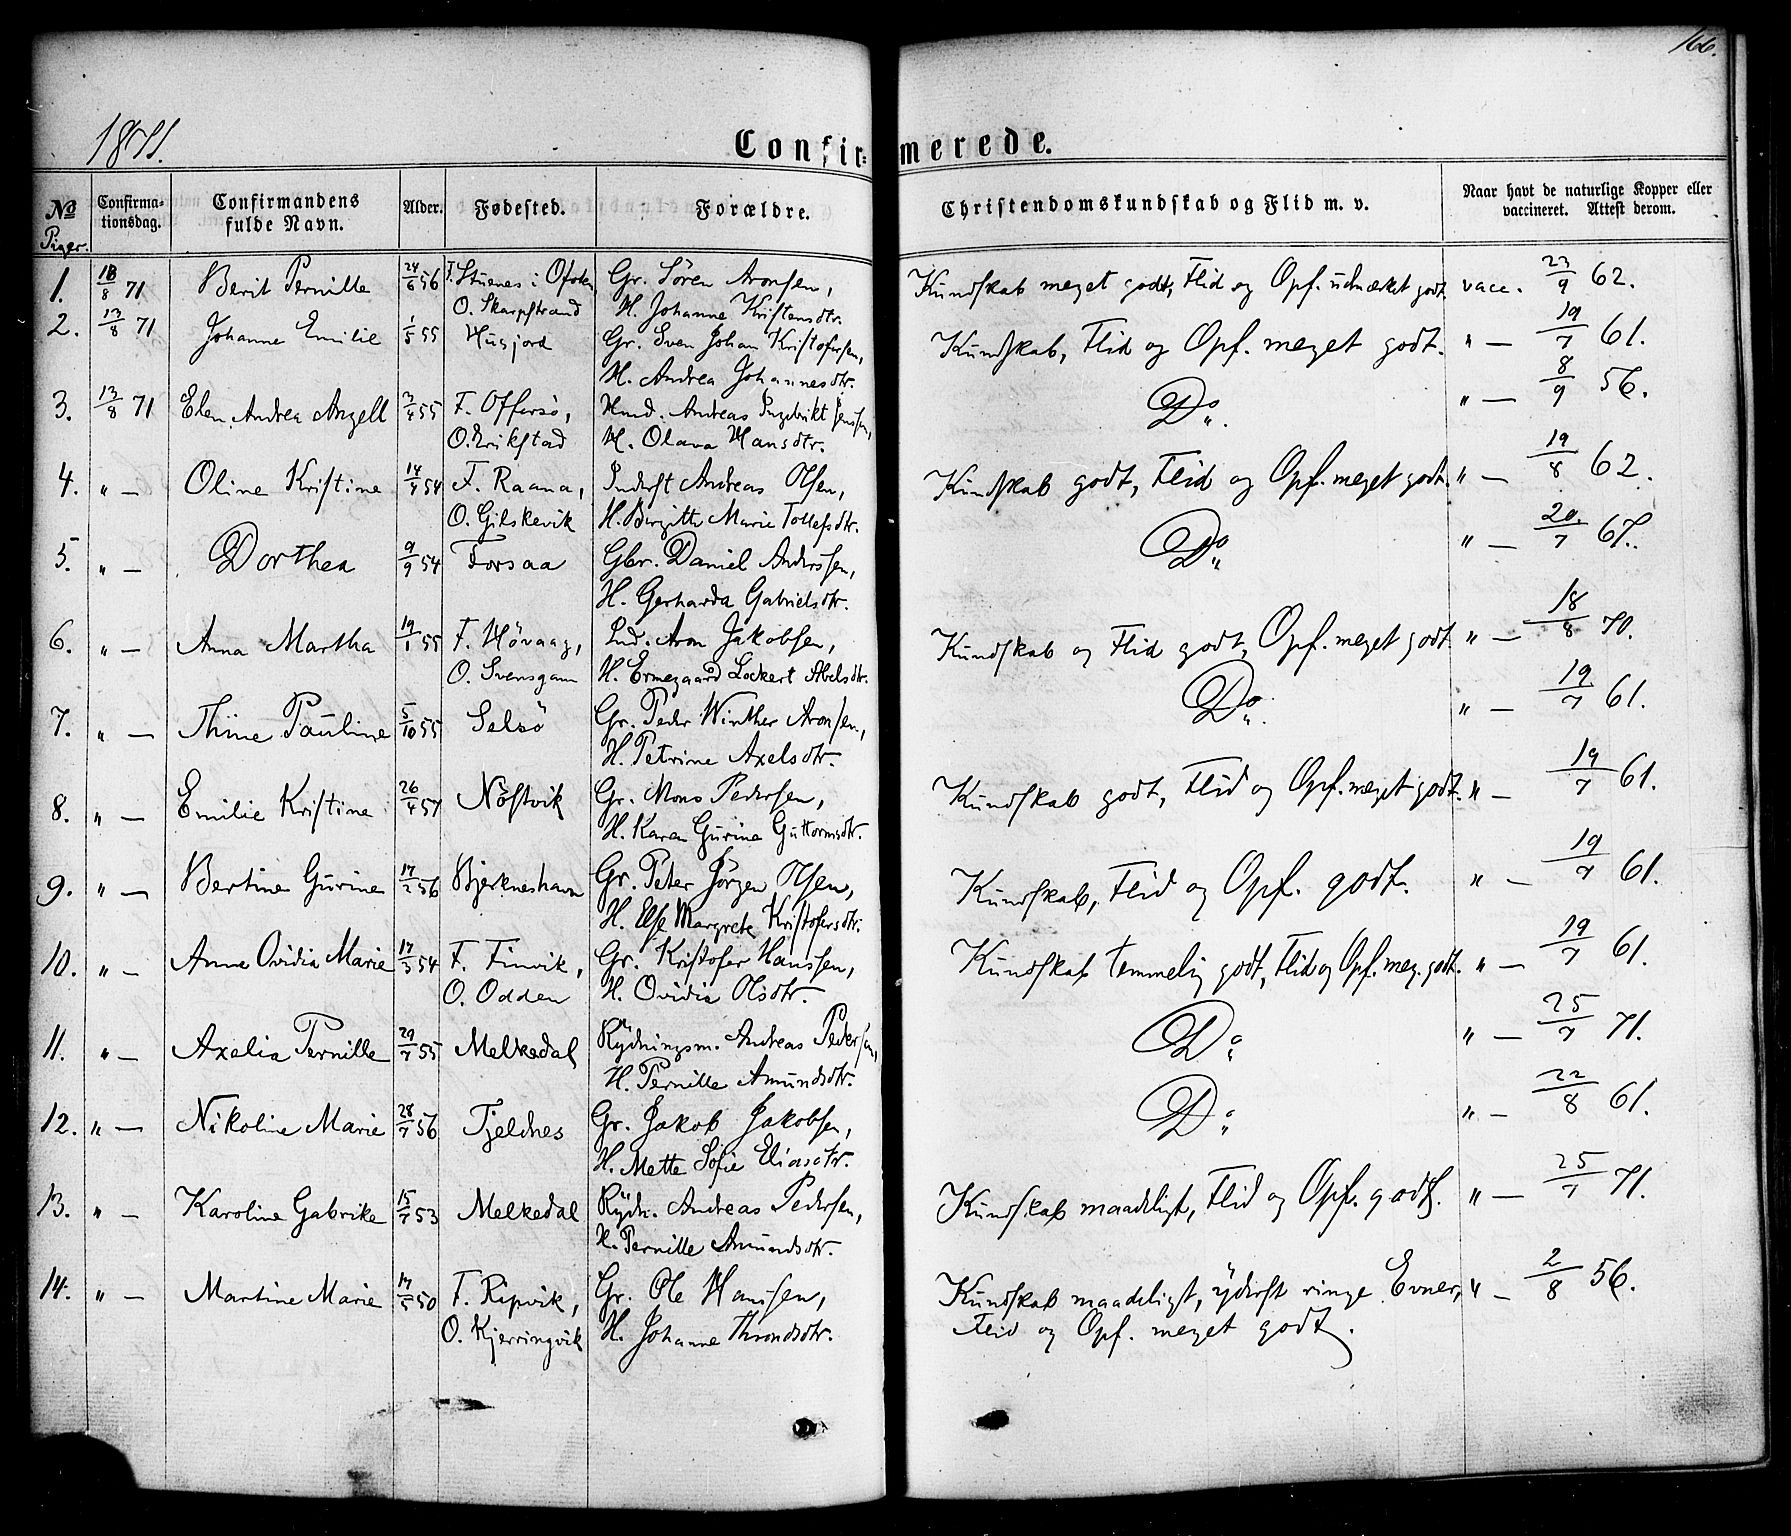 166.
1871.
Confirmerede.
No Piger.
Confirmationsdag.
Confirmandens fulde Navn.
Alder.
Fødested.
Forældre.
Christendomskundskab og Flid m. v.
Naar havt de naturlige Kopper eller vaccineret. Attest derom.
1. 13/8 71 Berit Pernille 24/6 56 F. Stuenes i Ofoten Gr. Sören Aronsen, Kundskab meget godt, Flid og Opf. udmærket godt. vacc. 23/9 62.
O. Skarpstrand H. Johanne Kristensdtr.
2. 13/8 71 Johanne Emilie 1/5 55 Husjord Gr. Sven Johan Kristofersen, Kundskab, Flid og Opf. meget godt. " — 19/7 61.
H. Andrea Johannesdtr.
3. 13/8 71 Elen Andrea Angell 2/4 55 F. Offersö, Hmd. Andreas Ingebrikt Jenssen, Do. " — 8/9 56.
O. Erikstad H. Olava Hansdtr.
4. " — Oline Kristine 14/4 54 F. Raana, Inderst Andreas Olsen, Kundskab godt, Flid og Opf. meget godt. " — 19/8 62.
O. Gilskevik H. Birgitte Marie Tollefsdtr.
5. " — Dorthea 9/9 54 Forsaa Gbr. Daniel Anderssen, Do " — 20/7 67.
H. Gerharda Gabrielsdtr.
6. " — Anna Martha 19/1 55 F. Hövaag, Ind. Aron Jakobsen, Kundskab og Flid godt, Opf. meget godt. " — 18/8 70.
O. Svensgam H. Ermegaard Lockert Abelsdtr.
7. " — Thine Pauline 5/10 55 Selsö Gr. Peder Winther Aronsen, Do. " — 19/7 61.
H. Petrine Axelsdtr.
8. " — Emilie Kristine 26/4 57 Nöstvik Gr. Mons Pedersen, Kundskab godt, Flid og Opf. meget godt. " — 19/7 61.
H. Karen Gurine Guttormsdtr.
9. " — Bertine Gurine 17/2 56 Bjerkneshavn Gr. Peter Jörgen Olsen, Kundskab, Flid og Opf. godt. " — 19/7 61.
H. Else Margrete Kristofersdtr.
10. " — Anne Ovidia Marie 17/3 54 F. Finvik, Gr. Kristofer Hanssen, Kundskab temmelig godt, Flid og Opf. meg. godt. " — 19/7 61.
O. Odden H. Ovidia Olsdtr.
11. " — Axelia Pernille 29/7 55 Melkedal Rydningsm. Andreas Pedersen, Do " — 25/7 71.
H. Pernille Amundsdtr.
12. " — Nikoline Marie 28/7 56 Tjeldnes Gr. Jakob Jakobsen, Do " — 22/8 61.
H. Mette Sofie Eliasdtr.
13. " — Karoline Gabrike 15/7 53 Melkedal Rydn. Andreas Pedersen, Kundskab maadeligt, Flid og Opf. godt. " — 25/7 71.
H. Pernille Amundsdtr.
14. " — Martine Marie 17/5 50 F. Ripvik, Gr. Ole Hanssen, Kundskab maadeligt, yderst ringe Evner, " — 2/8 56.
O. Kjerringvik H. Johanne Throndsdtr. Flid og Opf. meget godt.